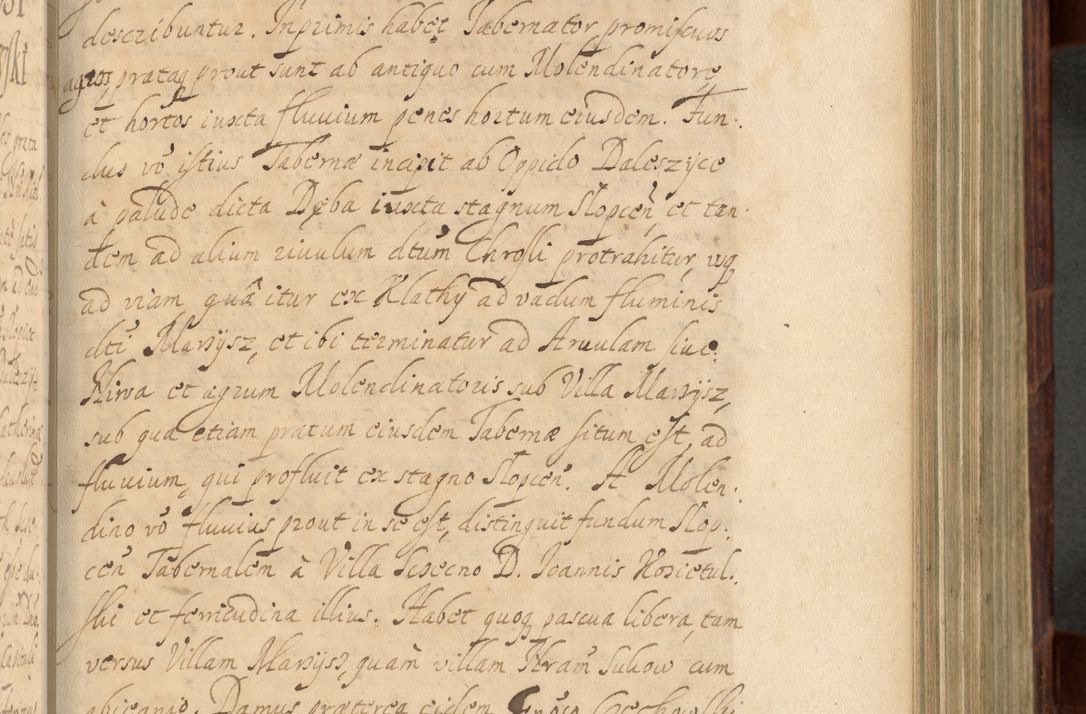 describuntur. Inprimis habet Tabernator promiscuos
agros, prataq prout sunt ab antiquo cum Molendinatore,
et hortos iuxta fluuium penes hortum eiusdem. Fun-
dus vo istius Tabernæ incipit ab Oppido Daleszyce
à palude dicta Dęba iuxta stagnum Slopcen et tan-
dem ad alium riuulum dtum Chrosli protrahitur, usq
ad viam quâ itur ex Klathy ad vadum fluminis
dti Marzysz, et ibi terminatur ad Aruulam siue
Niwa et agrum Molendinatoris sub Villa Marzysz,
sub qua etiam pratum eiusdem Tabernæ situm est, ad
fluuium, qui profluit ex stagno Slopcen. A Molen-
dino vo fluuius prout in se est, distinguit fundum Slop-
cen Tabernalem à Villa Scecno D. Joannis Kosietul-
ski et ferricudina illius. Habet quoq pascua libera, tam
versus Villam Marzysz, quam villam Sukow cum
Damus præterea eidem